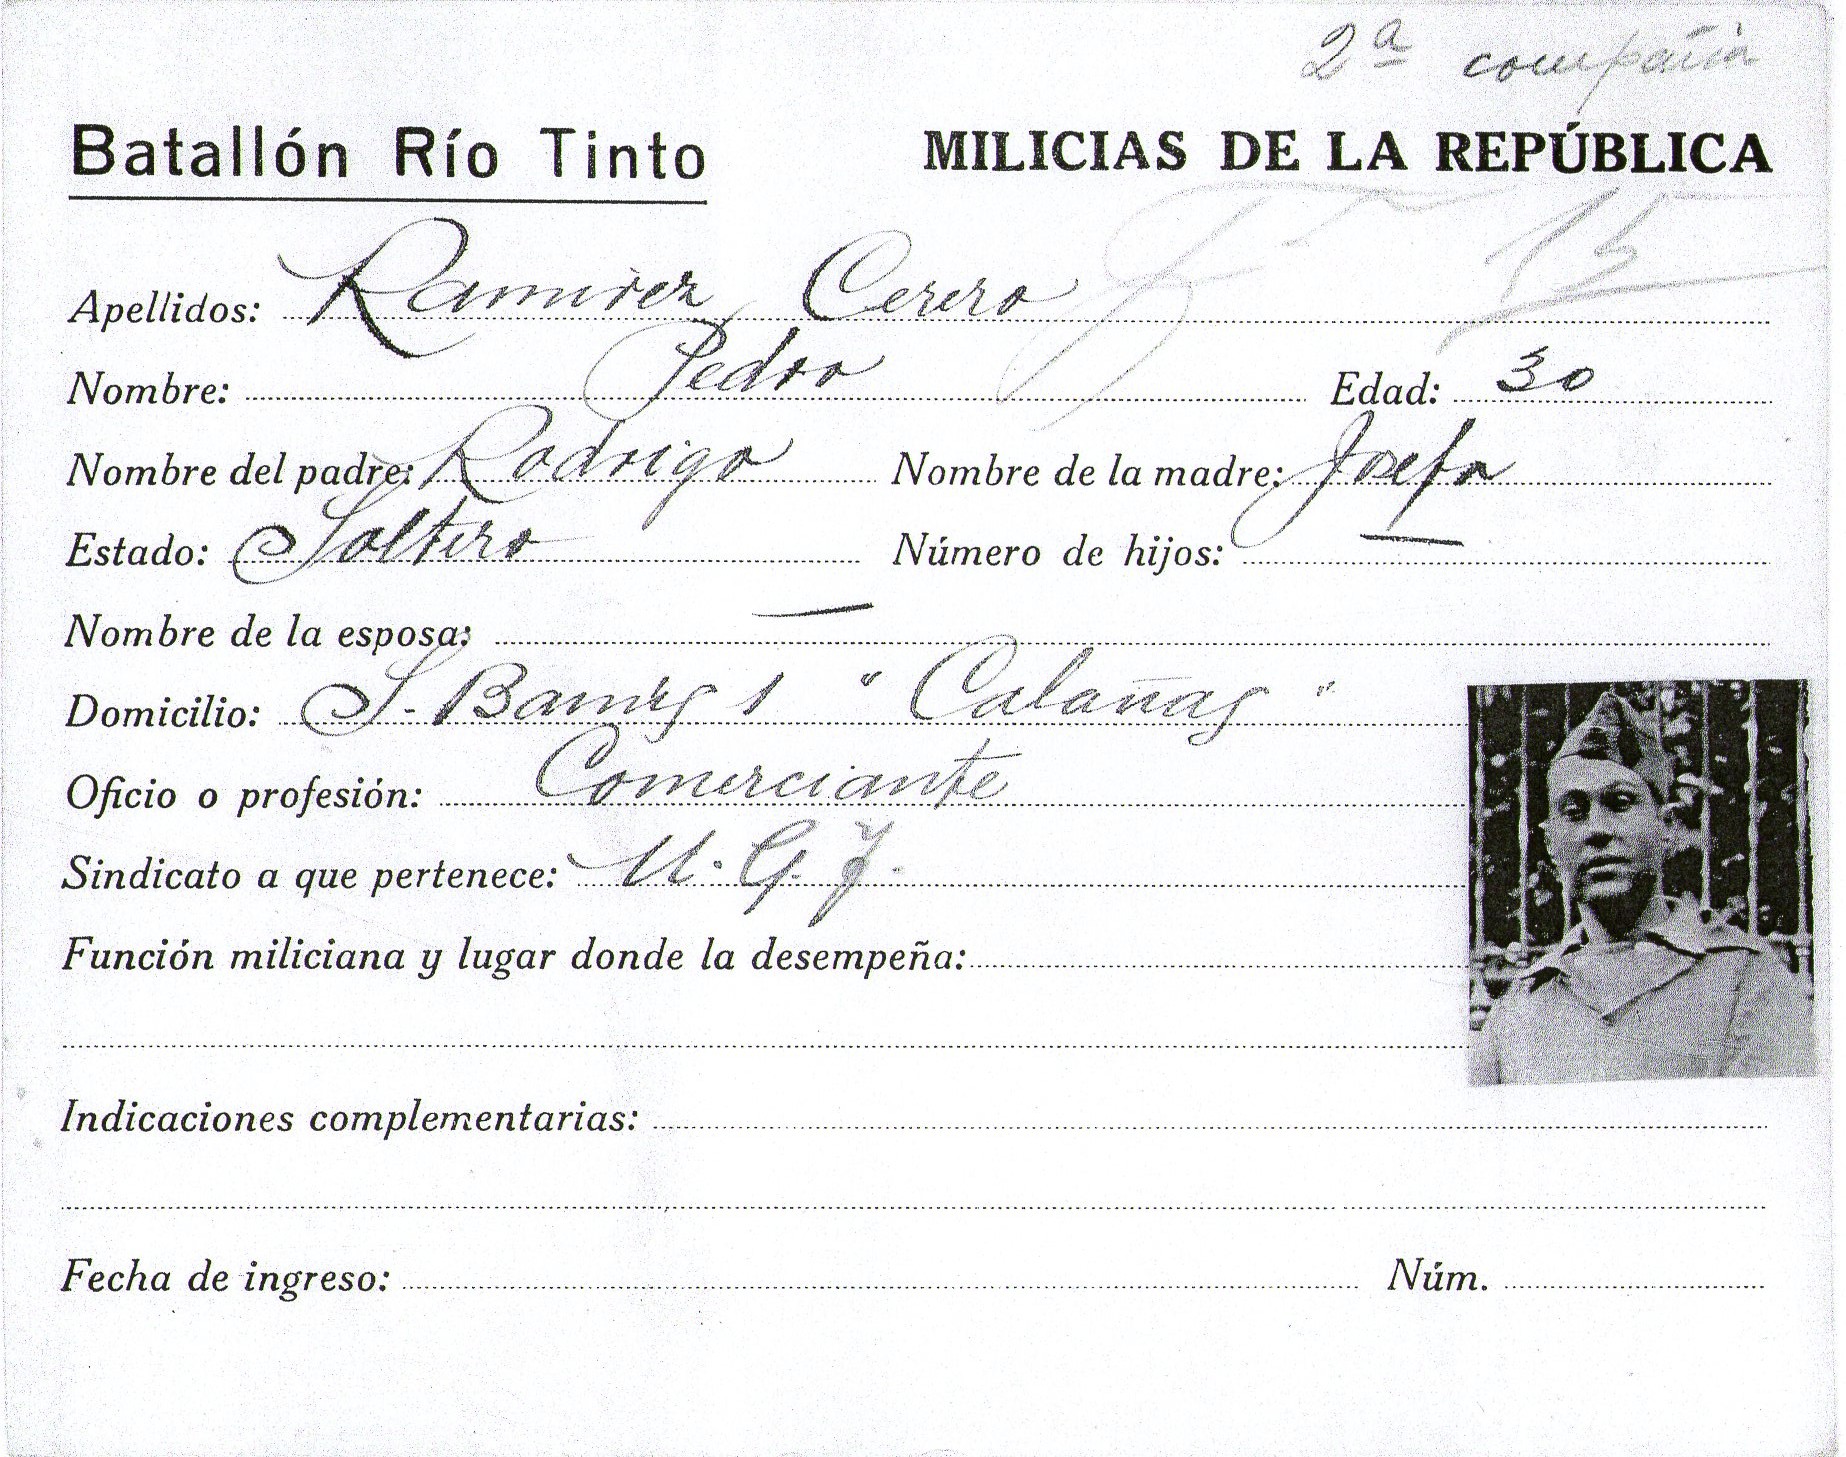 2ª compañia
Batallón Río Tinto MILICIAS DE LA REPÚBLICA
15
Apellidos: Ramirez Cerero
Nombre: Pedro Edad: 30
Nombre del padre: Rodrigo Nombre de la madre: Josefa
Estado: Soltero Número de hijos: —
Nombre de la esposa: —
Domicilio: S. 1 " Calañas "
Oficio o profesión: Comerciante
Sindicato a que pertenece: U. G. T.
Función miliciana y lugar donde la desempeña:
Indicaciones complementarias:
Fecha de ingreso: Núm.